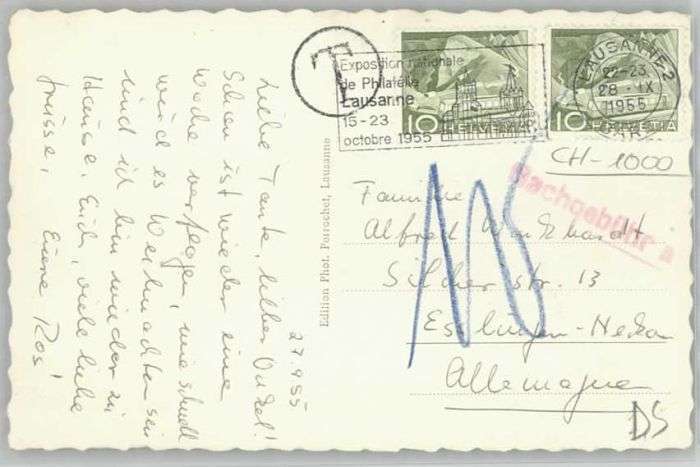 27.9.55
Liebe Tante, lieber Onkel!
Schon ist wieder eine
Woche verflogen, wie schnell
wird es Weihnachten sein
und ich bin wieder zu
Hause. Euch, viele liebe
Grüsse, Euere Ros!
Edition Phot. Perrochet, Lausanne
T
Exposition nationale
de Philatélie
Lausanne
15-23
octobre 1955
10 HELVETIA
10 HELVETIA
LAUSANNE 2
22-23
28 - IX
1955
CH-1000
Nachgebühr
Familie
Alfred
Silcherstr. 13
Esslingen-Neckar
Allemagne
DS